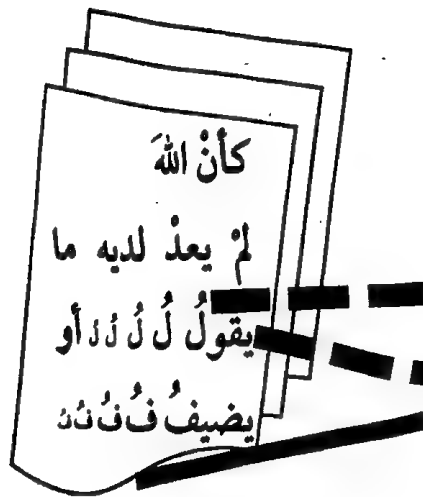 كأنْ اللهَ
لمْ يعدْ لديه ما
يقولُ لُ لُ دُ دُ أو
يضيفُ فُ فُ دُ دُ